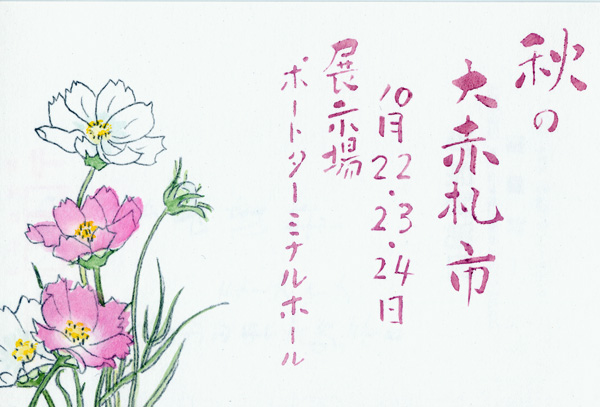 秋の
大赤札市
10月22.23.24日
展示場
ポートターミナルホール